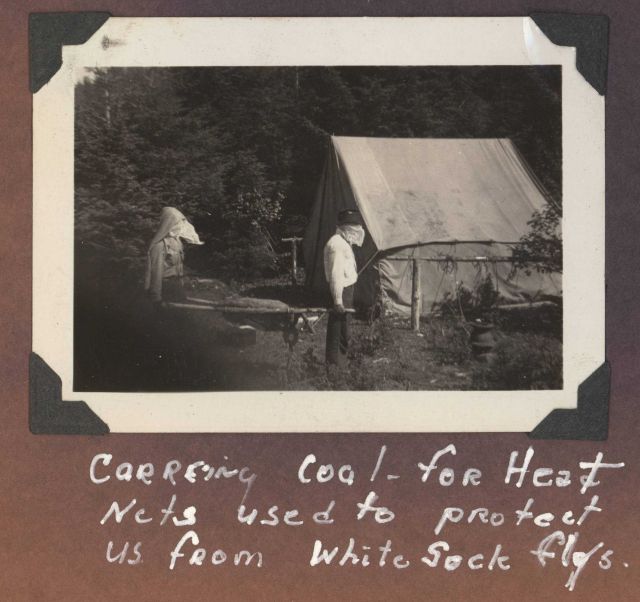 CARREing Coal - for Heat
Nets used to protect
us from White Sock flys.